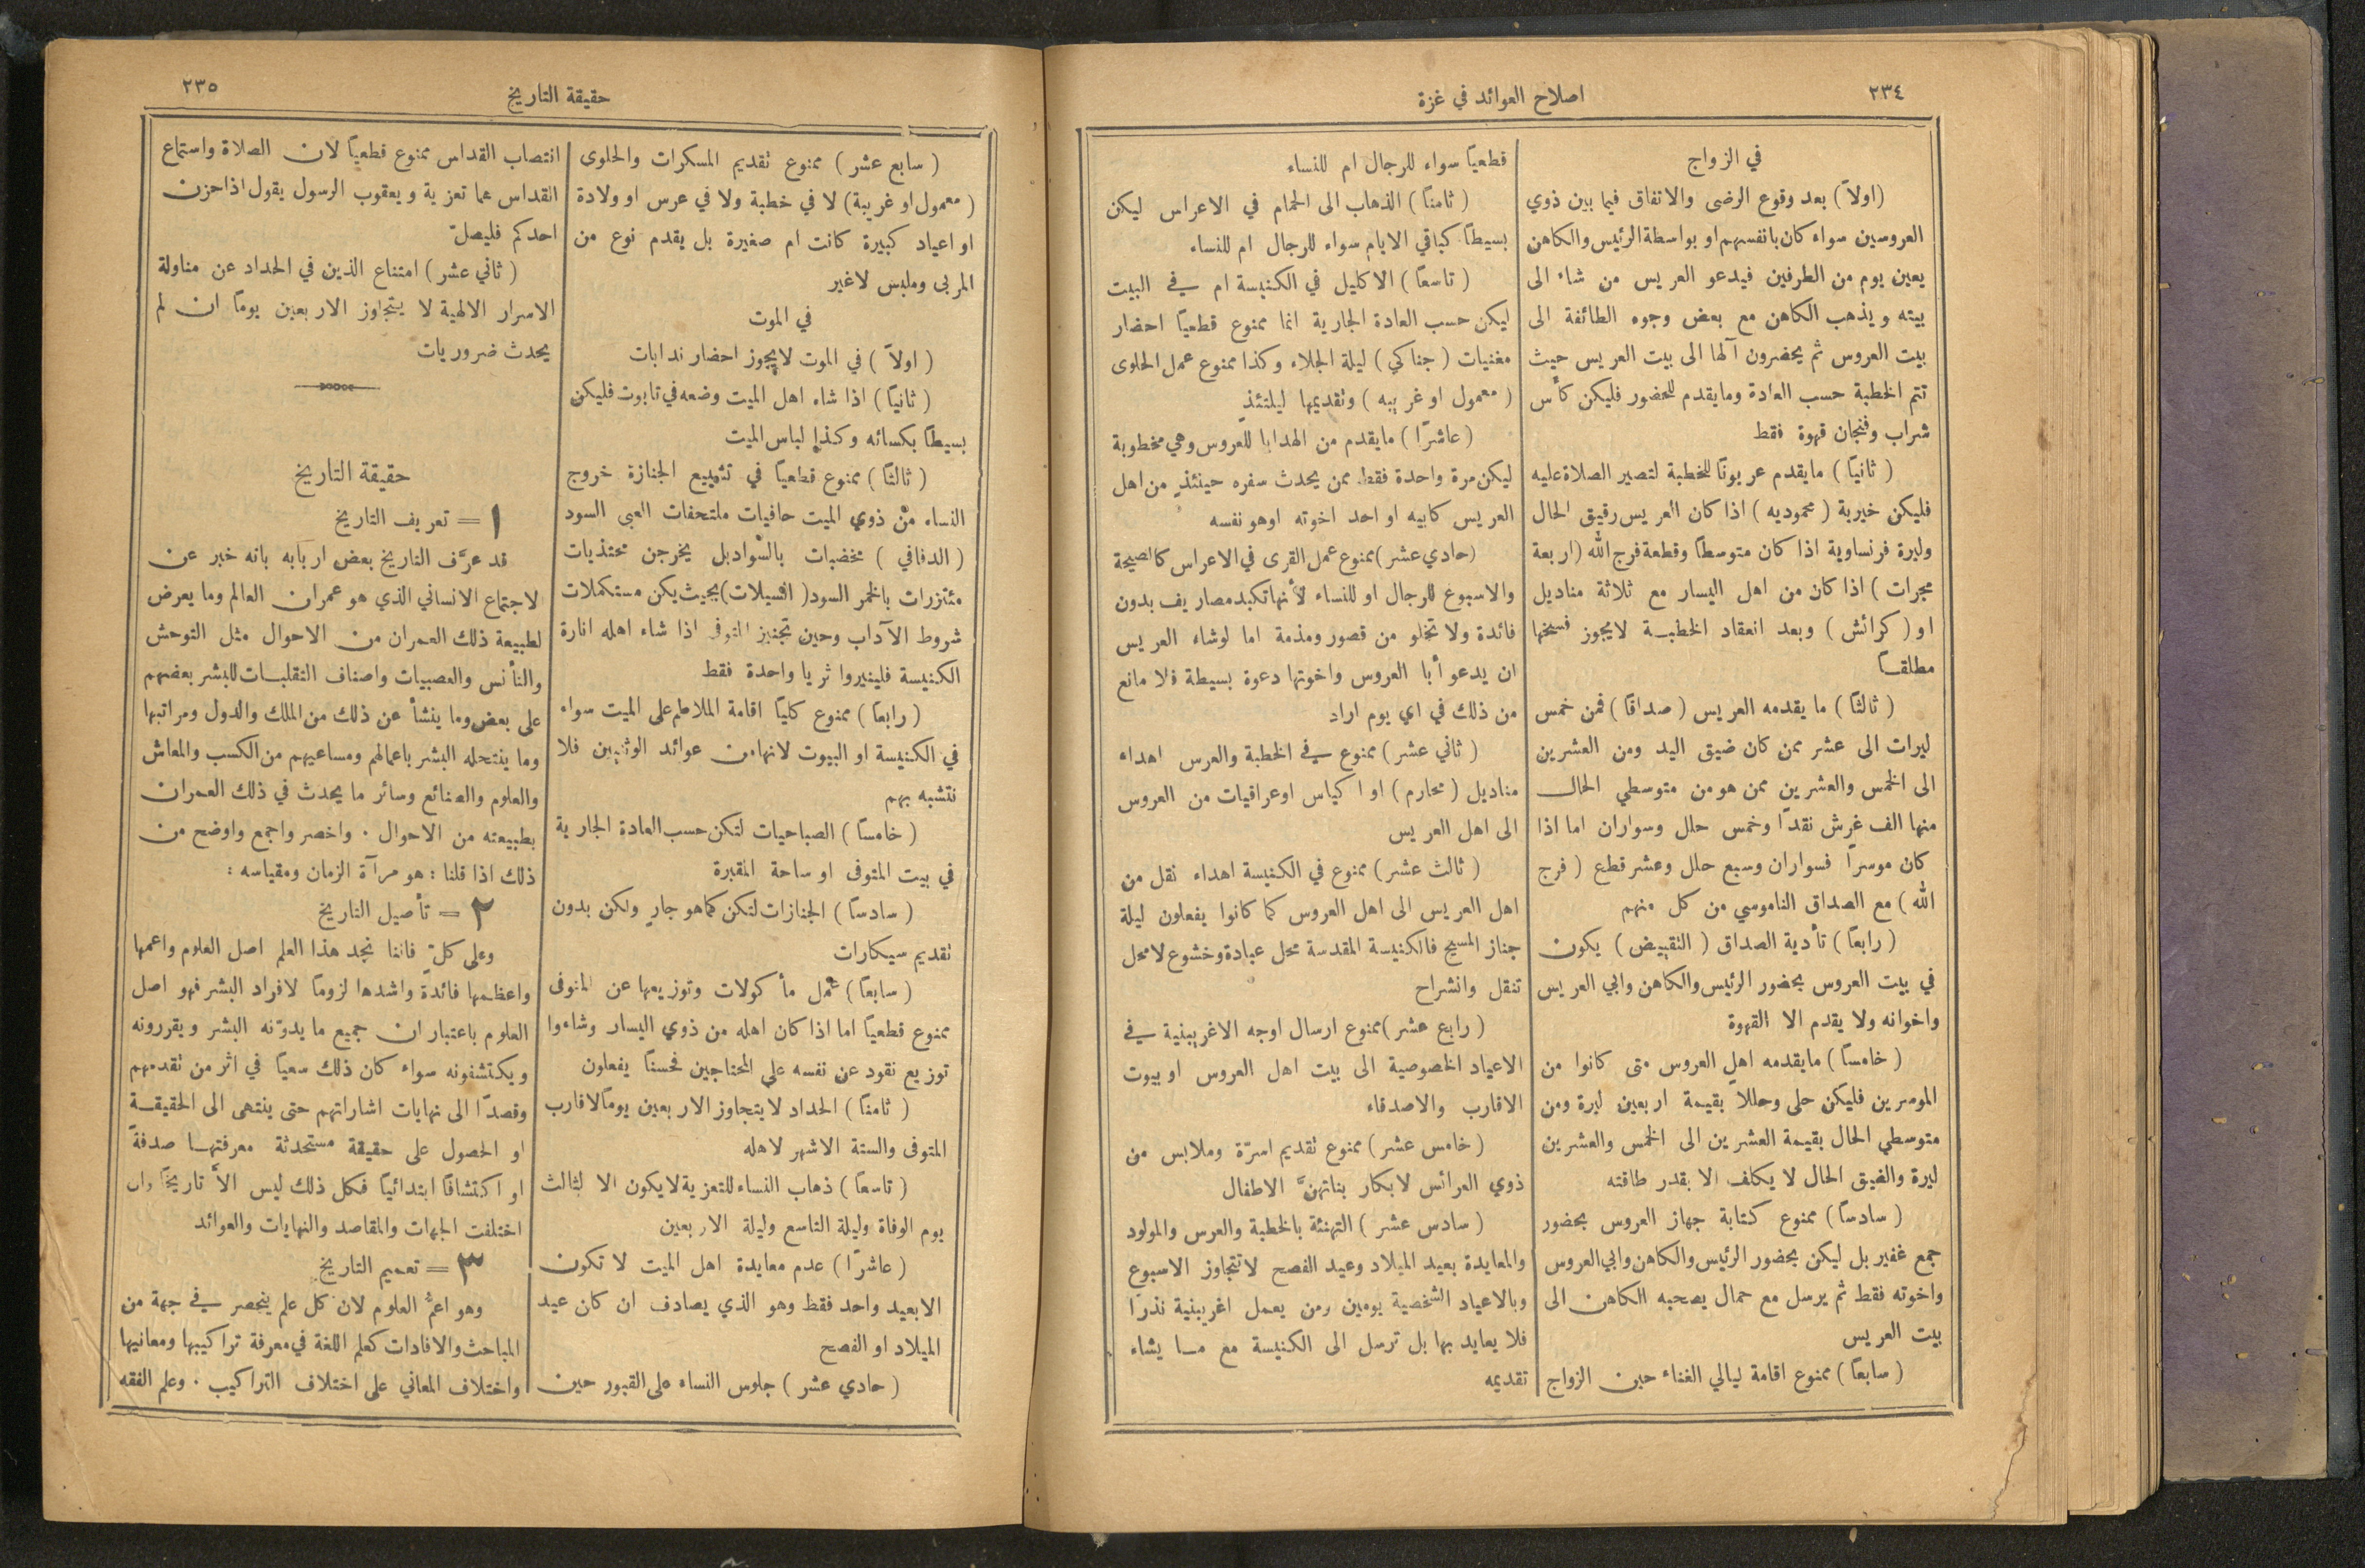 ٢٣٤
اصلاح العوائد في غزة
في الزواج
(اولاً) بعد وقوع الرضى والاتفاق فيما بين ذوي
العروسين سواء كان بانفسهم او بواسطة الرئيس والكاهن
يعين يوم من الطرفين فيدعو العريس من شاء الى
بيته ويذهب الكاهن مع بعض وجوه الطائفة الى
بيت العروس ثم يحضرون آلها الى بيت العريس حيث
تتم الخطبة حسب العادة وما يقدم للحضور فليكن كأس
شراب وفنجان قهوة فقط
(ثانيًا) ما يقدم عربونًا للخطبة لتصير الصلاة عليه
فليكن خيرية (محموديه) اذا كان العريس رقيق الحال
وليرة فرنساوية اذا كان متوسطًا وقطعة فرج الله (اربعة
مجرات) اذا كان من اهل اليسار مع ثلاثة مناديل
او (كرائش) وبعد انعقاد الخطبة لا يجوز فسخها
مطلقًا
(ثالثًا) ما يقدمه العريس (صداقًا) فمن خمس
ليرات الى عشر ممن كان ضيق اليد ومن العشرين
الى الخمس والعشرين ممن هو من متوسطي الحال
منها الف غرش نقدًا وخمس حلل وسواران اما اذا
كان موسرًا فسواران وسبع حلل وعشر قطع (فرج
الله) مع الصداق الناموسي من كل منهم
(رابعًا) تأدية الصداق (التقبيض) يكون
في بيت العروس بحضور الرئيس والكاهن وابي العريس
واخوانه ولا يقدم الا القهوة
(خامسًا) ما يقدمه اهل العروس متى كانوا من
الموسرين فليكن حلى وحللاً بقيمة اربعين ليرة ومن
متوسطي الحال بقيمة العشرين الى الخمس والعشرين
ليرة والضيق الحال لا يكلف الا بقدر طاقته
(سادسًا) ممنوع كتابة جهاز العروس بحضور
جمع غفير بل ليكن بحضور الرئيس والكاهن وابي العروس
واخوته فقط ثم يرسل مع حمال يصحبه الكاهن الى
بيت العريس
(سابعًا) ممنوع اقامة ليالي الغناء حين الزواج
قطعيًا سواء للرجال ام للنساء
(ثامنًا) الذهاب الى الحمام في الاعراس ليكن
بسيطًا كباقي الايام سواء للرجال ام للنساء
(تاسعًا) الاكليل في الكنيسة ام في البيت
ليكن حسب العادة الجارية انما ممنوع قطعيًا احضار
مغنيات (جناكي) ليلة الجلاء وكذا ممنوع عمل الحلوى
(معمول او غريبه) وتقديمها ليلتئذٍ
(عاشرًا) ما يقدم من الهدايا للعروس وهي مخطوبة
ليكن مرة واحدة فقط ممن يحدث سفره حينئذٍ من اهل
العريس كابيه او احد اخوته او هو نفسه
(حادي عشر) ممنوع عمل القرى في الاعراس كالصبحة
والاسبوع للرجال او للنساء لأنها تكبد مصاريف بدون
فائدة ولا تخلو من قصور ومذمة اما لو شاء العريس
ان يدعو أبا العروس واخوتها دعوة بسيطة فلا مانع
من ذلك في اي يوم اراد
(ثاني عشر) ممنوع في الخطبة والعرس اهداء
مناديل (محارم) او اكياس او عراقيات من العروس
الى اهل العريس
(ثالث عشر) ممنوع في الكنيسة اهداء نقل من
اهل العريس الى اهل العروس كما كانوا يفعلون ليلة
جناز المسيح فالكنيسة المقدسة محل عبادة وخشوع لا محل
تنقل وانشراح
(رابع عشر) ممنوع ارسال اوجه الاغريبنية في
الاعياد الخصوصية الى بيت اهل العروس او بيوت
الاقارب والاصدقاء
(خامس عشر) ممنوع تقديم اسرّة وملابس من
ذوي العرائس لابكار بناتهنَّ الاطفال
(سادس عشر) التهنئة بالخطبة والعرس والمولود
والمعايدة بعيد الميلاد وعيد الفصح لا تتجاوز الاسبوع
وبالاعياد الشخصية يومين ومن يعمل اغريبنية نذرًا
فلا يعايد بها بل ترسل الى الكنيسة مع ما يشاء
تقديمه
حقيقة التاريخ
٢٣٥
(سابع عشر) ممنوع تقديم المسكرات والحلوى
(معمول او غريبة) لا في خطبة ولا في عرس او ولادة
او اعياد كبيرة كانت ام صغيرة بل يقدم نوع من
المربى وملبس لا غير
في الموت
(اولاً) في الموت لا يجوز احضار ندابات
(ثانيًا) اذا شاء اهل الميت وضعه في تابوت فليكن
بسيطًا بكسائه وكذا لباس الميت
(ثالثًا) ممنوع قطعيًا في تشييع الجنازة خروج
النساء من ذوي الميت حافيات ملتحفات العبي السود
(الدفافي) مخضبات بالسواد بل يخرجن محتذيات
مئتزرات بالخمر السود (الفسيلات) بحيث يكن مستكملات
شروط الآداب وحين تجنيز المتوفى اذا شاء اهله انارة
الكنيسة فلينيروا ثريا واحدة فقط
(رابعًا) ممنوع كليًا اقامة الملاطم على الميت سواء
في الكنيسة او البيوت لانها من عوائد الوثنيين فلا
نتشبه بهم
(خامسًا) الصباحيات لتكن حسب العادة الجارية
في بيت المتوفى او ساحة المقبرة
(سادسًا) الجنازات لتكن كما هو جارٍ ولكن بدون
تقديم سيكارات
(سابعًا) عمل مأكولات وتوزيعها عن المتوفى
ممنوع قطعيًا اما اذا كان اهله من ذوي اليسار وشاءوا
توزيع نقود عن نفسه على المحتاجين فحسنًا يفعلون
(ثامنًا) الحداد لا يتجاوز الاربعين يومًا لاقارب
المتوفى والستة الاشهر لاهله
(تاسعًا) ذهاب النساء للتعزية لا يكون الا لثالث
يوم الوفاة وليلة التاسع وليلة الاربعين
(عاشرًا) عدم معايدة اهل الميت لا تكون
الا بعيد واحد فقط وهو الذي يصادف ان كان عيد
الميلاد او الفصح
(حادي عشر) جلوس النساء على القبور حين
انتصاب القداس ممنوع قطعيًا لان الصلاة واستماع
القداس عما تعزية ويعقوب الرسول يقول اذا حزن
احدكم فليصلّ
(ثاني عشر) امتناع الذين في الحداد عن مناولة
الاسرار الالهية لا يتجاوز الاربعين يومًا ان لم
يحدث ضروريات
حقيقة التاريخ
١ = تعريف التاريخ
قد عرَّف التاريخ بعض اربابه بانه خبر عن
الاجتماع الانساني الذي هو عمران العالم وما يعرض
لطبيعة ذلك العمران من الاحوال مثل التوحش
والتأنس والعصبيات واصناف التقلبات للبشر بعضهم
على بعض وما ينشأ عن ذلك من الملك والدول ومراتبها
وما ينتحله البشر باعمالهم ومساعيهم من الكسب والمعاش
والعلوم والصنائع وسائر ما يحدث في ذلك العمران
بطبيعته من الاحوال . واخصر واجمع واوضح من
ذلك اذا قلنا : هو مرآة الزمان ومقياسه :
٢ = تأصيل التاريخ
وعلى كلّ فاننا نجد هذا العلم اصل العلوم واعمها
واعظمها فائدة واشدها لزومًا لافراد البشر فهو اصل
العلوم باعتبار ان جميع ما يدوّنه البشر ويقررونه
ويكتشفونه سواء كان ذلك سعيًا في اثر من تقدمهم
وقصدًا الى نهايات اشاراتهم حتى ينتهى الى الحقيقة
او الحصول على حقيقة مستحدثة معرفتها صدفةً
او اكتشافًا ابتدائيًا فكل ذلك ليس الاَّ تاريخًا وان
اختلفت الجهات والمقاصد والنهايات والعوائد
٣ = تعميم التاريخ
وهو اعمُّ العلوم لان كل علم ينحصر في جهة من
المباحث والافادات كعلم اللغة في معرفة تراكيبها ومعانيها
واختلاف المعاني على اختلاف التراكيب . وعلم الفقه